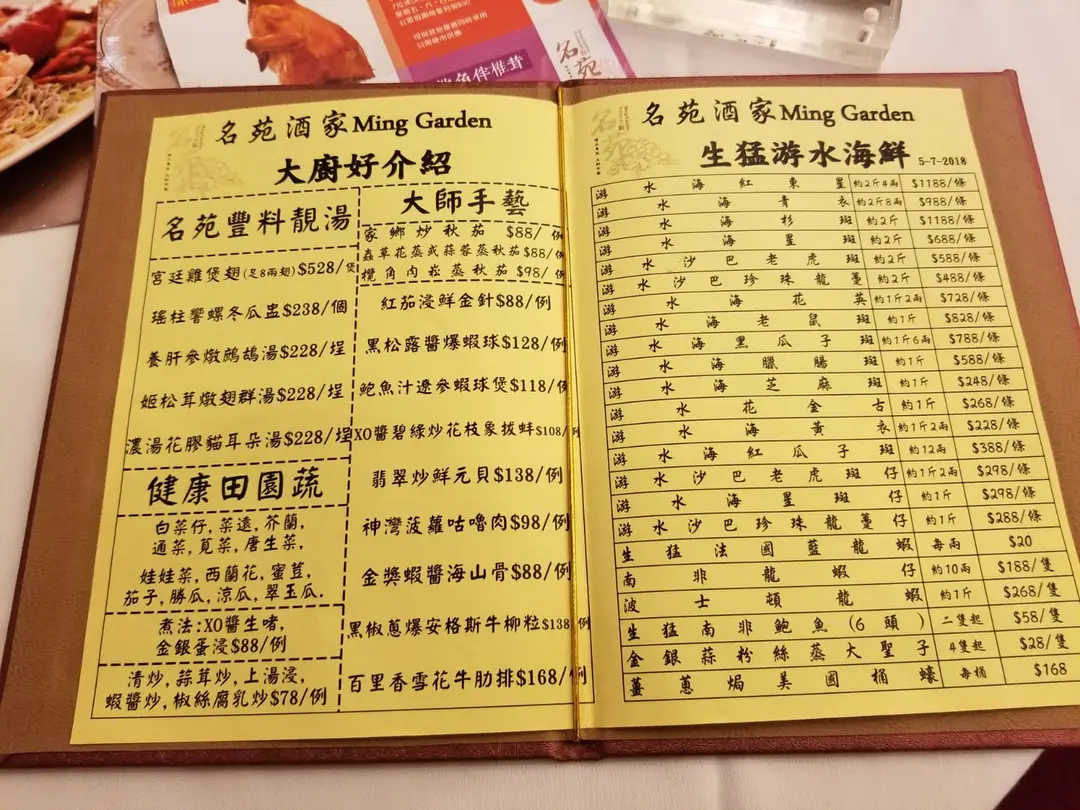 名苑
酒家
名苑酒家Ming Garden
大廚好介紹
名苑豐料靚湯
宮廷雞煲翅(足8兩翅)$528/煲
瑤柱響螺冬瓜盅$238/個
養肝參燉鷓鴣湯$228/埕
姬松茸燉翅群湯$228/埕
濃湯花膠貓耳朵湯$228/埕
健康田園蔬
白菜仔,菜遠,芥蘭,
通菜,莧菜,唐生菜,
娃娃菜,西蘭花,蜜荳,
茄子,勝瓜,涼瓜,翠玉瓜.
煮法:XO醬生啫,
金銀蛋浸$88/例
清炒,蒜茸炒,上湯浸,
蝦醬炒,椒絲腐乳炒$78/例
大師手藝
家鄉炒秋茄 $88/例
蟲草花蒸或蒜蓉蒸秋茄$88/例
欖角肉崧蒸秋茄$98/例
紅茄浸鮮金針$88/例
黑松露醬爆蝦球$128/例
鮑魚汁遼參蝦球煲$118/例
XO醬碧綠炒花枝象拔蚌$108/例
翡翠炒鮮元貝$138/例
神灣菠蘿咕嚕肉$98/例
金獎蝦醬海山骨$88/例
黑椒蔥爆安格斯牛柳粒$138/例
百里香雪花牛肋排$168/例
名苑酒家Ming Garden
生猛游水海鮮 5-7-2018
游水海紅東星 約2斤4兩 $1188/條
游水海青衣 約2斤8兩 $988/條
游水海杉斑 約2斤 $1188/條
游水海星斑 約2斤 $688/條
游水沙巴老虎斑 約2斤 $588/條
游水沙巴珍珠龍躉 約2斤 $488/條
游水海花英 約1斤2兩 $728/條
游水海老鼠斑 約1斤 $828/條
游水海黑瓜子斑 約1斤6兩 $788/條
游水海臘腸斑 約1斤 $588/條
游水海芝麻斑 約1斤 $248/條
游水花金古 約1斤 $268/條
游水海黃衣 約1斤2兩 $228/條
游水海紅瓜子斑 約12兩 $388/條
游水沙巴老虎斑仔 約1斤2兩 $298/條
游水海星斑仔 約1斤 $298/條
游水沙巴珍珠龍躉仔 約1斤 $288/條
生猛法國藍龍蝦 每兩 $20
南非龍蝦仔 約10兩 $188/隻
波士頓龍蝦 約1斤 $268/隻
生猛南非鮑魚(6頭) 二隻起 $58/隻
金銀蒜粉絲蒸大聖子 4隻起 $28/隻
薑蔥焗美國桶蠔 每桶 $168